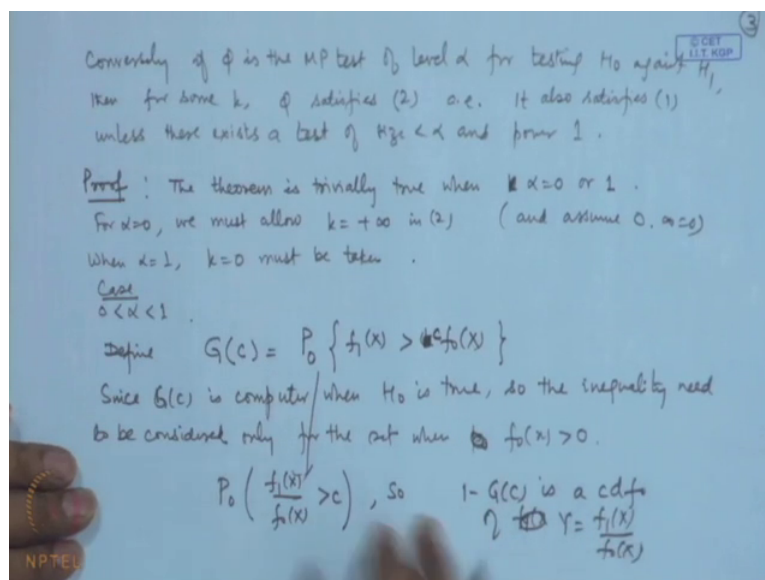 3
© CET
I.I.T. KGP
Conversely if φ is the MP test of level α for testing H₀ against H₁,
then for some k, φ satisfies (2) a.e. It also satisfies (1)
unless there exists a test of size < α and power 1.
Proof : The theorem is trivially true when α=0 or 1.
For α=0, we must allow k = +∞ in (2) (and assume 0.∞=0)
When α=1, k=0 must be taken.
Case
0<α<1.
Define G(c) = P₀ { f₁(X) > c f₀(X) }
Since G(c) is computer when H₀ is true, so the inequality need
to be considered only for the set when f₀(x) > 0.
P₀ ( f₁(X)/f₀(X) > c ), so 1- G(c) is a cdf
of Y = f₁(X)/f₀(X)
NPTEL